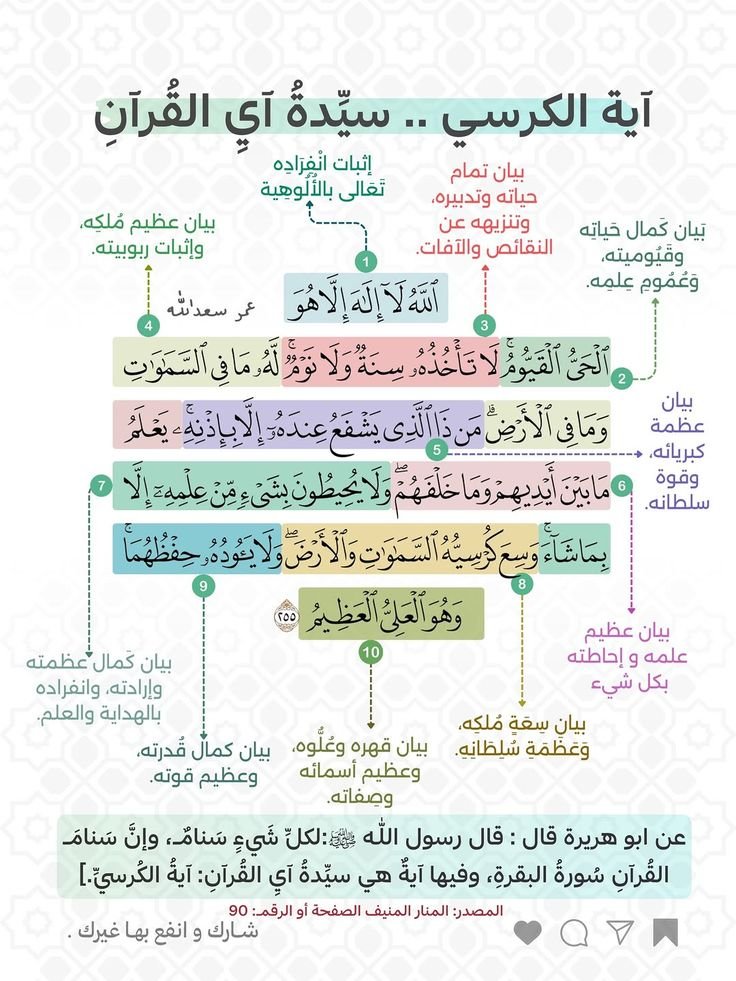 آية الكرسي .. سيِّدةُ آيِ القُرآنِ
إثبات انْفِرَادِه
تَعَالى بالأُلُوهِية
بيان تمام
حياته وتدبيره،
وتنزيهه عن
النقائص والآفات.
بَيان كَمال حَياتِه
وقَيُوميته،
وَعُمُومِ عِلمِه.
بيان عظيم مُلكِه،
وإثبات ربوبيته.
عمر سعدالله
1
ٱللَّهُ لَآ إِلَٰهَ إِلَّا هُوَ
4
3
2
ٱلْحَىُّ ٱلْقَيُّومُ ۚ لَا تَأْخُذُهُۥ سِنَةٌ وَلَا نَوْمٌ ۚ لَّهُۥ مَا فِى ٱلسَّمَٰوَٰتِ
وَمَا فِى ٱلْأَرْضِ ۗ مَن ذَا ٱلَّذِى يَشْفَعُ عِندَهُۥٓ إِلَّا بِإِذْنِهِۦ ۚ يَعْلَمُ
5
بيان
عظمة
كبريائه،
وقوة
سلطانه.
مَا بَيْنَ أَيْدِيهِمْ وَمَا خَلْفَهُمْ ۖ وَلَا يُحِيطُونَ بِشَىْءٍ مِّنْ عِلْمِهِۦٓ إِلَّا
6
7
بِمَا شَآءَ ۚ وَسِعَ كُرْسِيُّهُ ٱلسَّمَٰوَٰتِ وَٱلْأَرْضَ ۖ وَلَا يَـُٔودُهُۥ حِفْظُهُمَا ۚ
8
9
وَهُوَ ٱلْعَلِىُّ ٱلْعَظِيمُ ٢٥٥
10
بيان عظيم
علمه و إحاطته
بكل شيء
بيان كَمال عظمته
وإرادته، وانفراده
بالهداية والعلم.
بيانِ سِعَةٍ مُلكِه،
وَعَظَمَةِ سُلِطَانِهِ.
بيان قهره وعُلُّوه،
وعظيم أسمائه
وصِفاته.
بيان كمال قُدرته،
وعظيم قوته.
عن ابو هريرة قال : قال رسول الله ﷺ:لكلِّ شَيءٍ سَنامٌ، وإنَّ سَنامَ
القُرآنِ سُورةُ البقرةِ، وفيها آيةٌ هي سيِّدةُ آيِ القُرآنِ: آيةُ الكُرسيِّ.]
المصدر: المنار المنيف الصفحة أو الرقم: 90
شارك و انفع بها غيرك .